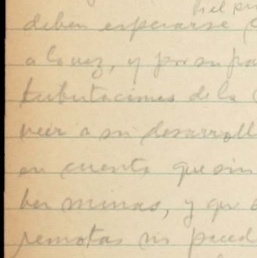 deben esperarse
a la vez, y por su pa
tributaciones de la
veer a su desarroll
en cuenta que sin
ber menas, y que
remotas ni pued